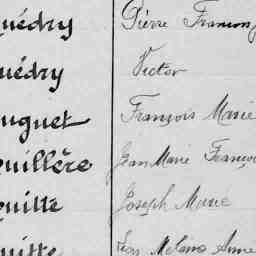 uédry Pierre François
uédry Victor
uguet François Marie
ouillère Jean Marie Franço
ouitte Joseph Marie
ouitte Anne